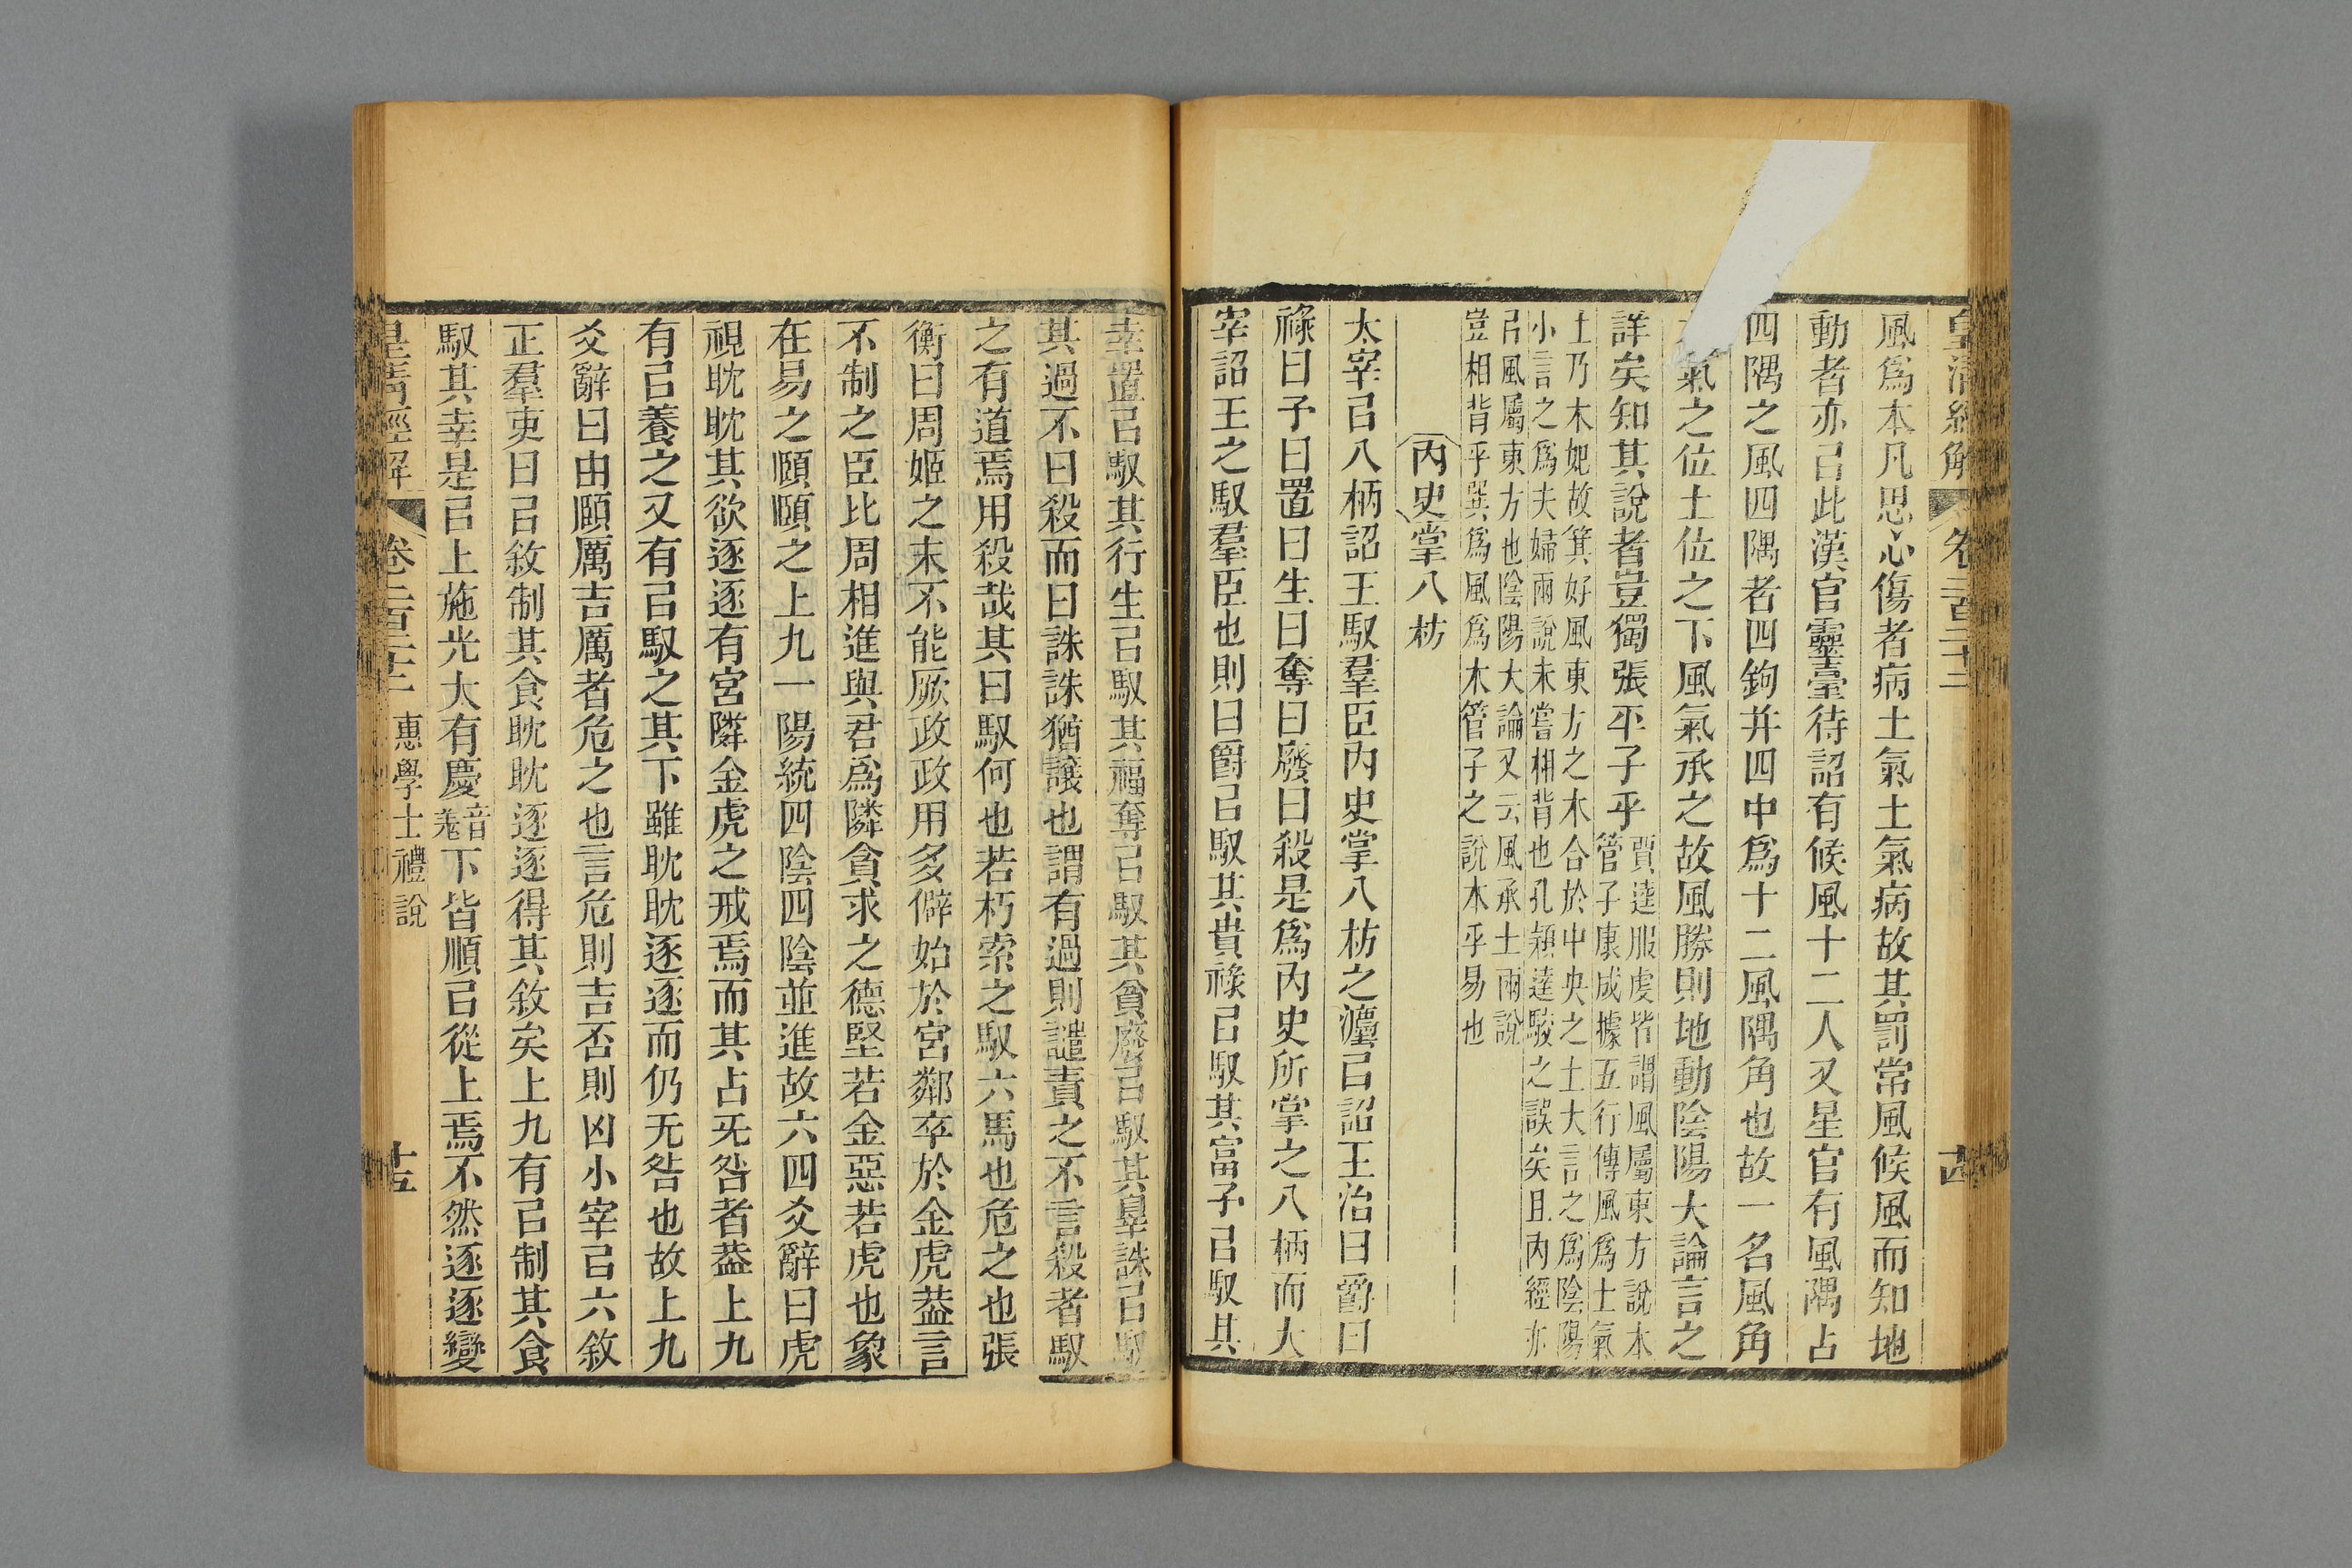 皇清經解 卷二百二十二 古
風爲本凡思心傷者病土氣土氣病故其罰常風候風而知地
動者亦㠯此漢官靈臺待詔有候風十二人又星官有風隅占
四隅之風四隅者四鉤并四中爲十二風隅角也故一名風角
氣之位土位之下風氣承之故風勝則地動陰陽大論言之
詳矣知其說者豈獨張平子乎
賈逵服虔皆謂風屬東方說木
管子康成據五行傳風爲土氣
土乃木妃故箕好風東方之木合於中央之土大言之爲陰陽
小言之爲夫婦兩說未嘗相背也孔穎達駮之誤矣且內經亦
㠯風屬東方也陰陽大論又云風承土雨說
豈相背乎巽爲風爲木管子之說本乎易也
內史掌八枋
太宰㠯八柄詔王馭羣臣內史掌八枋之灋㠯詔王治曰爵曰
祿曰予曰置曰生曰奪曰廢曰殺是爲內史所掌之八柄而大
宰詔王之馭羣臣也則曰爵㠯馭其貴祿㠯馭其富予㠯馭其
幸置㠯馭其行生㠯馭其福奪㠯馭其貧廢㠯馭其辠誅㠯馭
其過不曰殺而曰誅誅猶讓也謂有過則譴責之不言殺者馭
之有道焉用殺哉其曰馭何也若朽索之馭六馬也危之也張
衡曰周姬之末不能厥政政用多僻始於宮鄰卒於金虎葢言
不制之臣比周相進與君爲隣貪求之德堅若金惡若虎也象
在易之頤頤之上九一陽統四陰四陰並進故六四爻辭曰虎
視眈眈其欲逐逐有宮隣金虎之戒焉而其占无咎者葢上九
有㠯養之又有㠯馭之其下雖眈眈逐逐而仍无咎也故上九
爻辭曰由頤厲吉厲者危之也言危則吉否則凶小宰㠯六敘
正羣吏曰㠯敘制其食眈眈逐逐得其敘矣上九有㠯制其食
馭其幸是㠯上施光大有慶音羗下皆順㠯從上焉不然逐逐變
皇清經解 卷二百二十二 惠學士禮說 十五